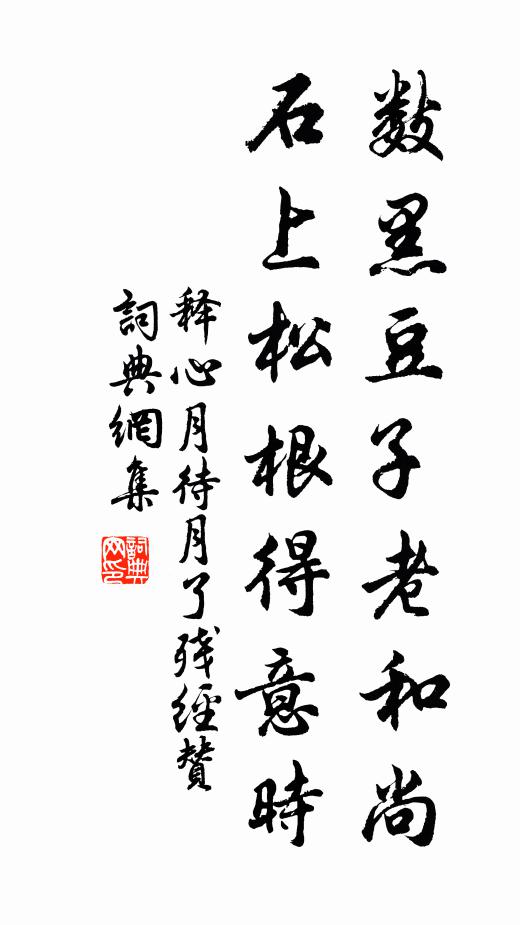 数黑豆子老和尚
石上松根得意時
释心月待月了残經贊
詞典網集
詞典網印